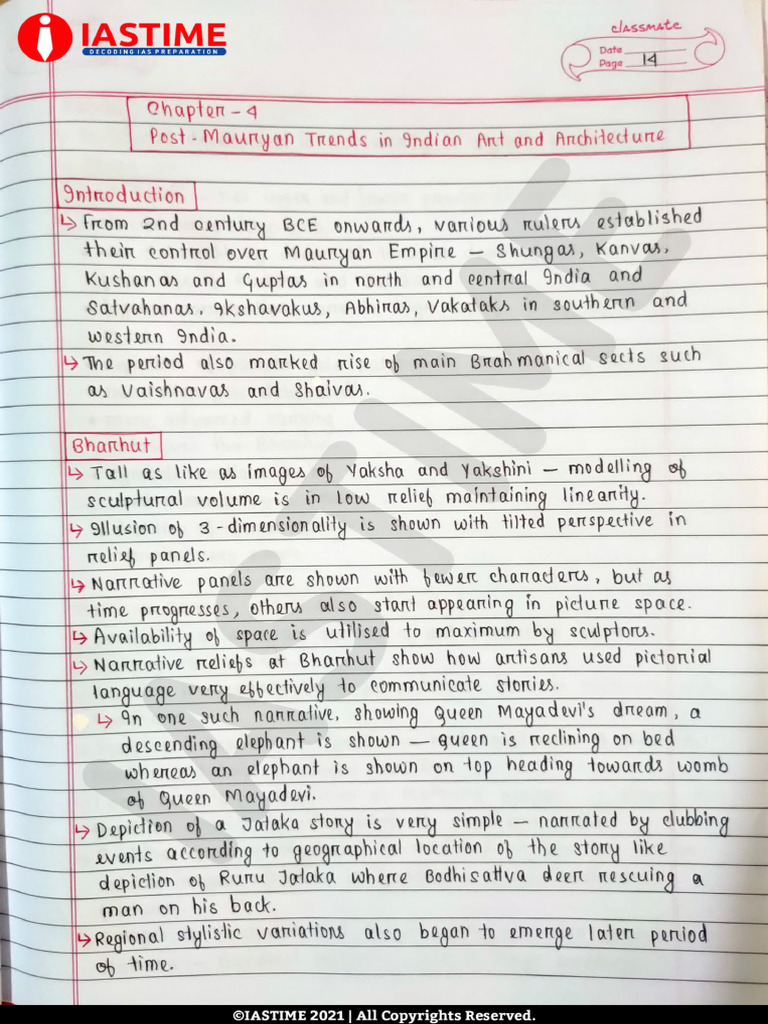 IASTIME
DECODING IAS PREPARATION
classmate
Date
Page 14
Chapter - 4
Post - Mauryan Trends in Indian Art and Architecture
Introduction
↳ From 2nd century BCE onwards, various rulers established
their control over Mauryan Empire – Shungas, Kanvas,
Kushanas and Guptas in north and central India and
Satvahanas, Ikshavakus, Abhiras, Vakataks in southern and
western India.
↳ The period also marked rise of main Brahmanical sects such
as Vaishnavas and Shaivas.
Bharhut
↳ Tall as like as images of Yaksha and Yakshini – modelling of
sculptural volume is in low relief maintaining linearity.
↳ Illusion of 3 - dimensionality is shown with tilted perspective in
relief panels.
↳ Narrative panels are shown with fewer characters, but as
time progresses, others also start appearing in picture space.
↳ Availability of space is utilised to maximum by sculptors.
↳ Narrative reliefs at Bharhut show how artisans used pictorial
language very effectively to communicate stories.
↳ In one such narrative, showing Queen Mayadevi's dream, a
descending elephant is shown – queen is reclining on bed
whereas an elephant is shown on top heading towards womb
of Queen Mayadevi.
↳ Depiction of a Jataka story is very simple – narrated by clubbing
events according to geographical location of the story like
depiction of Ruru Jataka where Bodhisattva deer rescuing a
man on his back.
↳ Regional stylistic variations also began to emerge later period
of time.
IASTIME
©IASTIME 2021 | All Copyrights Reserved.